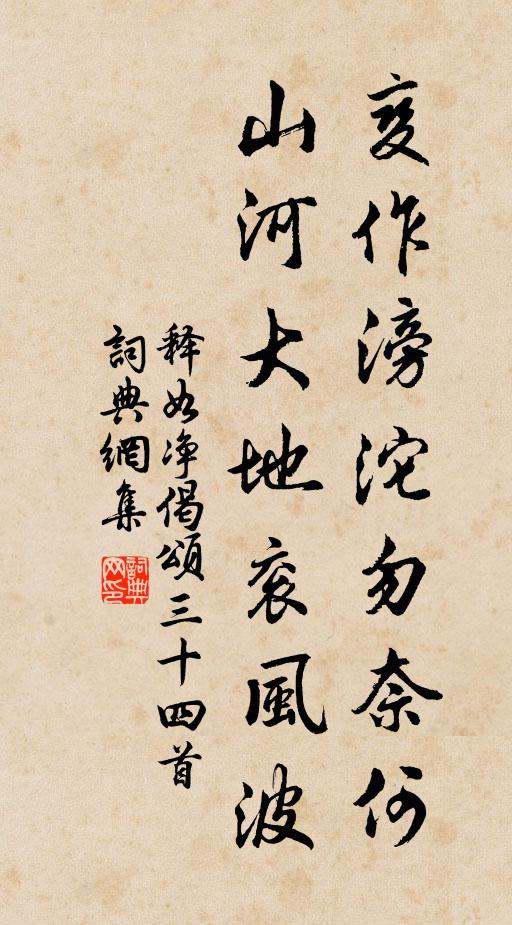 变作滂沱勿奈何
山河大地衮風波
释如净偈頌三十四首
詞典網集
詞典网印